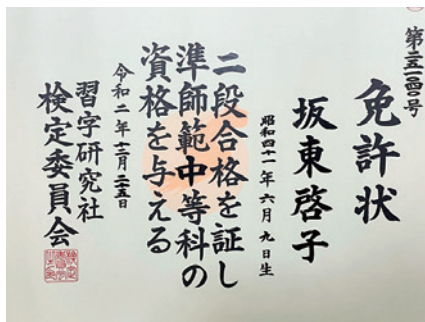 免許状
坂東啓子
昭和四十一年六月九日生
二段合格を証し
準師範中等科の
資格を与える
令和二年十二月二五日
習字研究社
検定委員会